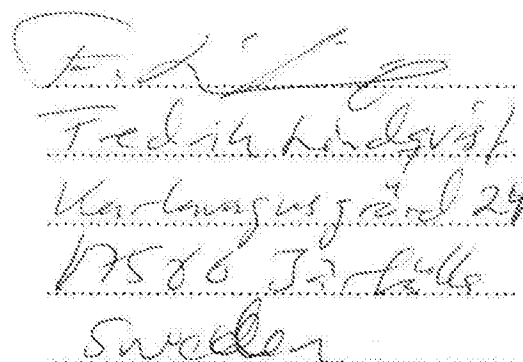 Fredrik Lindqvist
Karlavagnsgränd 24
175 66 Järfälla
Sweden